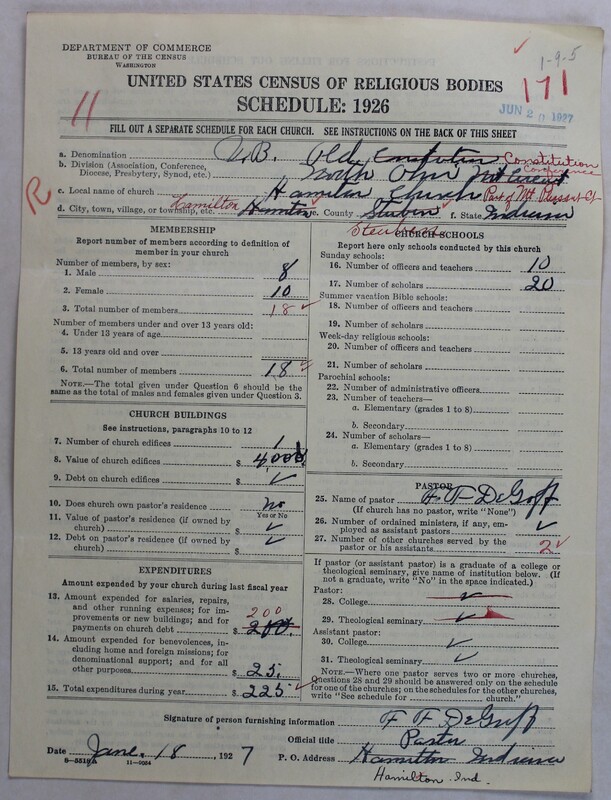 DEPARTMENT OF COMMERCE
BUREAU OF THE CENSUS
WASHINGTON
1-9-5
171
JUN 20 1927
UNITED STATES CENSUS OF RELIGIOUS BODIES
SCHEDULE: 1926
11
FILL OUT A SEPARATE SCHEDULE FOR EACH CHURCH. SEE INSTRUCTIONS ON THE BACK OF THIS SHEET
a. Denomination U.B. Old Constitution
b. Division (Association, Conference, Diocese, Presbytery, Synod, etc.) North Ohio Conference
R
c. Local name of church Hamilton Church Part of Mt Pleasant
d. City, town, village, or township, etc. Hamilton Hamilton e. County Steuben f. State Indiana
Steuben
MEMBERSHIP
Report number of members according to definition of member in your church
Number of members, by sex:
1. Male 8
2. Female 10
3. Total number of members 18
Number of members under and over 13 years old:
4. Under 13 years of age
5. 13 years old and over
6. Total number of members 18
NOTE.—The total given under Question 6 should be the same as the total of males and females given under Question 3.
CHURCH BUILDINGS
See instructions, paragraphs 10 to 12
7. Number of church edifices 1
8. Value of church edifices $ 4000
9. Debt on church edifices $ ✓
10. Does church own pastor's residence? No
Yes or No
11. Value of pastor's residence (if owned by church) $ ✓
12. Debt on pastor's residence (if owned by church) $ ✓
EXPENDITURES
Amount expended by your church during last fiscal year
13. Amount expended for salaries, repairs, and other running expenses; for improvements or new buildings; and for payments on church debt $ 200
200.
14. Amount expended for benevolences, including home and foreign missions; for denominational support; and for all other purposes $ 25.
15. Total expenditures during year $ 225
CHURCH SCHOOLS
Report here only schools conducted by this church
Sunday schools:
16. Number of officers and teachers 10
17. Number of scholars 20
Summer vacation Bible schools:
18. Number of officers and teachers
19. Number of scholars
Week-day religious schools:
20. Number of officers and teachers
21. Number of scholars
Parochial schools:
22. Number of administrative officers
23. Number of teachers—
a. Elementary (grades 1 to 8)
b. Secondary
24. Number of scholars—
a. Elementary (grades 1 to 8)
b. Secondary
PASTOR
25. Name of pastor F. F. DeGroff
(If church has no pastor, write "None")
26. Number of ordained ministers, if any, employed as assistant pastors ✓
27. Number of other churches served by the pastor or his assistants 2
If pastor (or assistant pastor) is a graduate of a college or theological seminary, give name of institution below. (If not a graduate, write "No" in the space indicated.)
Pastor:
28. College ✓
29. Theological seminary ✓
Assistant pastor:
30. College ✓
31. Theological seminary ✓
NOTE.—Where one pastor serves two or more churches, Questions 28 and 29 should be answered only on the schedule for one of the churches; on the schedules for the other churches, write "See schedule for church."
Signature of person furnishing information F F DeGroff
Official title Pastor
Date June 18, 1927 P. O. Address Hamilton Indiana
11-9054
Hamilton Ind.